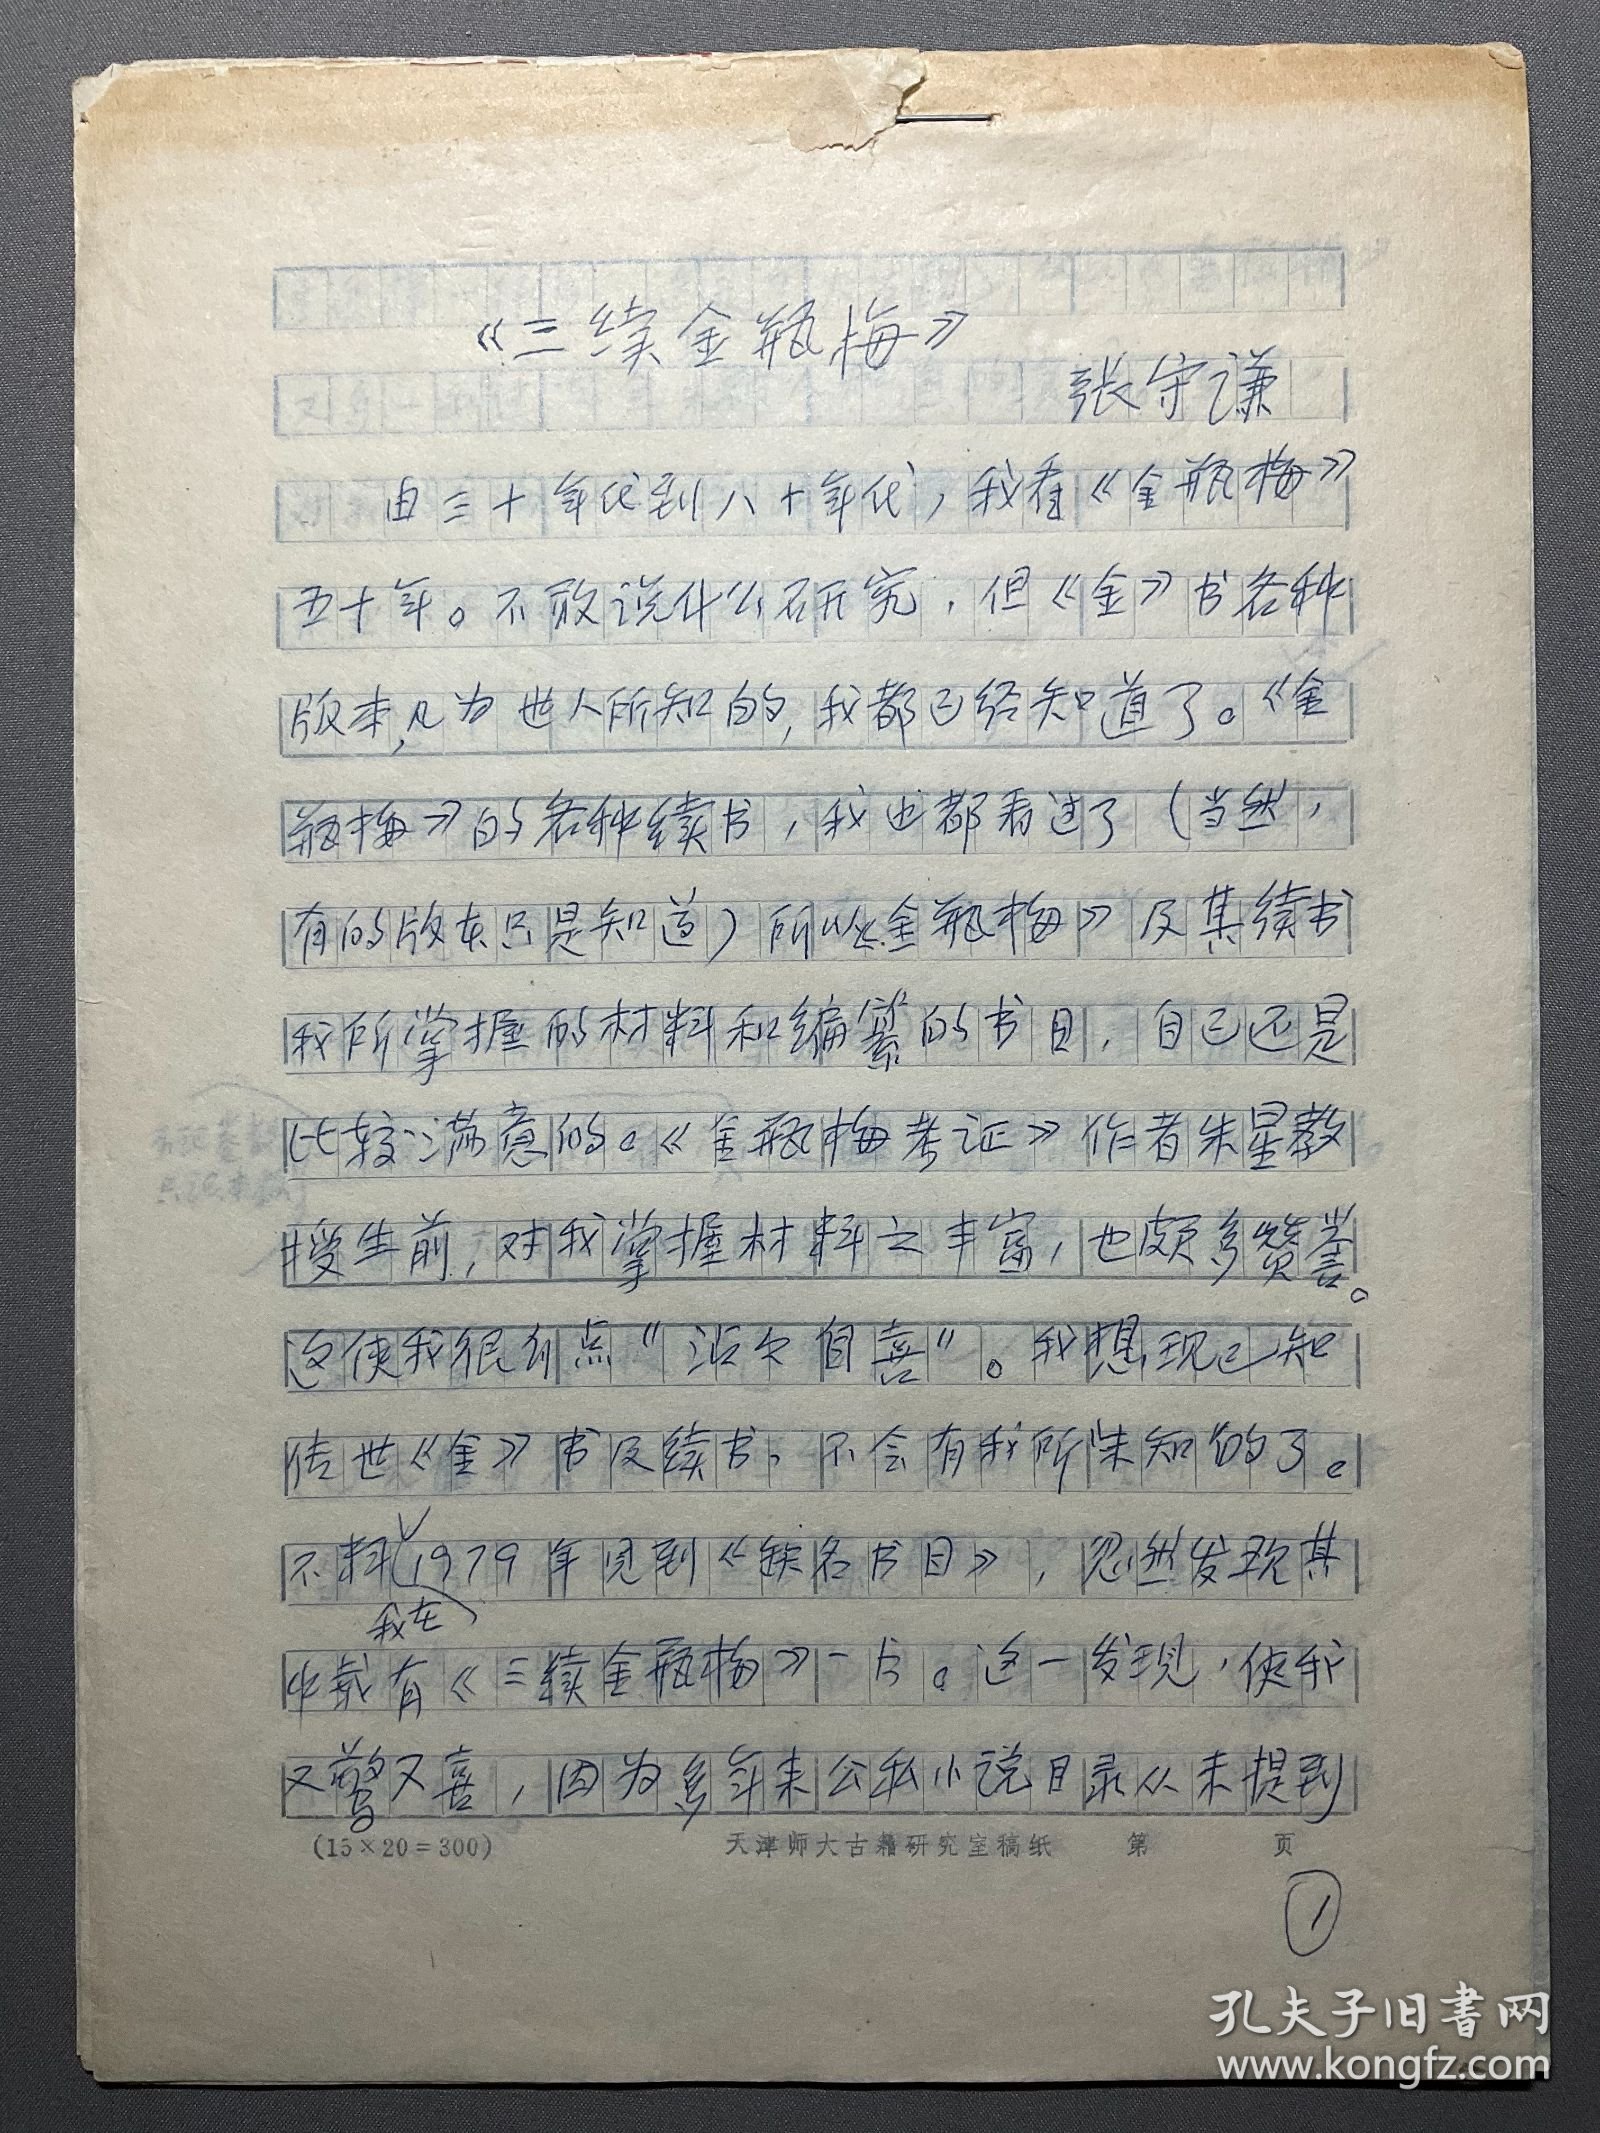 《三续金瓶梅》
张守谦
由三十年代到八十年代，我看《金瓶梅》
五十年。不敢说什么研究，但《金》书各种
版本，凡为世人所知的，我都已经知道了。《金
瓶梅》的各种续书，我也都看过了（当然，
有的版本只是知道）所以《金瓶梅》及其续书
我所掌握的材料和编纂的书目，自己还是
比较满意的。《金瓶梅考证》作者朱星教
授生前，对我掌握材料之丰富，也颇多赞善。
这使我很有点“沾欠自喜”。我想，现已知
传世《金》书及续书，不会有我所未知的了。
不料1979年见到《佚名书目》，忽然发现其
我在
中载有《三续金瓶梅》一书。这一发现，使我
又惊又喜，因为多年来公私小说目录从未提到
(15×20=300) 天津师大古籍研究室稿纸 第 页
1
孔夫子旧书网
www.kongfz.com